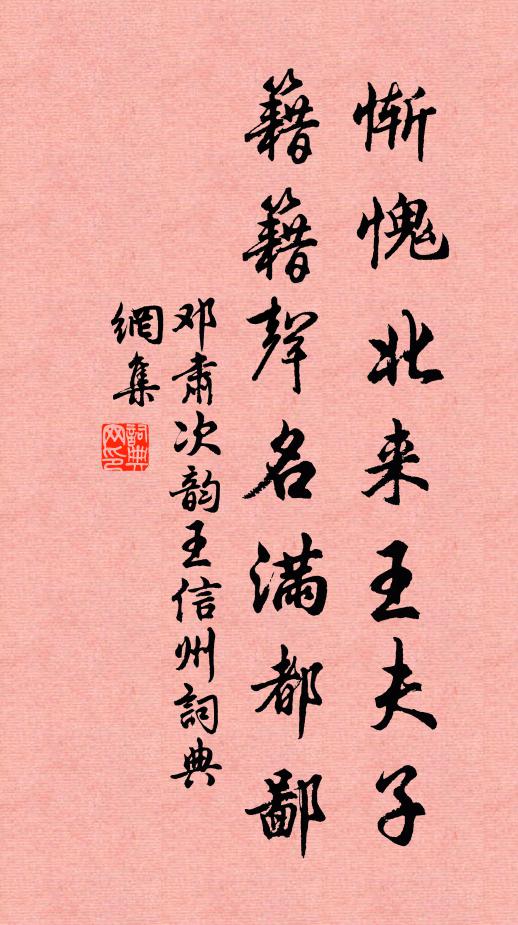 惭愧北来王夫子
籍籍聲名满都鄙
邓肃次韵王信州詞典
網集
詞典网印